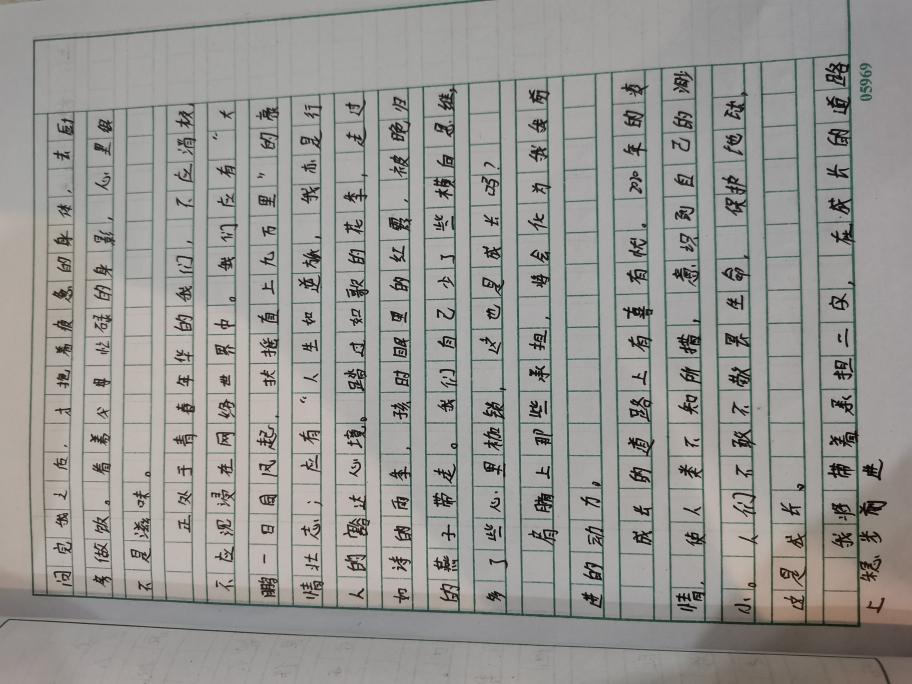 问完我之后，才拖着疲惫的身体，去厨
房做饭。看着父母忙碌的身影，心里很
不是滋味。
正处于青春年华的我们，不应消极
不应沉浸在网络世界中。我们应有“大
鹏一日同风起，扶摇直上九万里”的豪
情壮志；应有“人生如逆旅，我亦是行
人的豁达心境。踏过如歌的花季，走过
如诗的雨季，孩时眼里的红霞，被晚归
的燕子带走。我们自己少了些横向思维，
多了些心里枷锁，这也是成长吗？
肩膀上那些承担，将会化为我会前
进的动力。
成长的道路上有喜有忧。2020年的疫
情，使人类不知所措，意识到自己的渺
小。人们不敢不敬畏生命，保护地球，
这是成长。
我将带着承担二字，在成长的道路
上稳步前进
05969